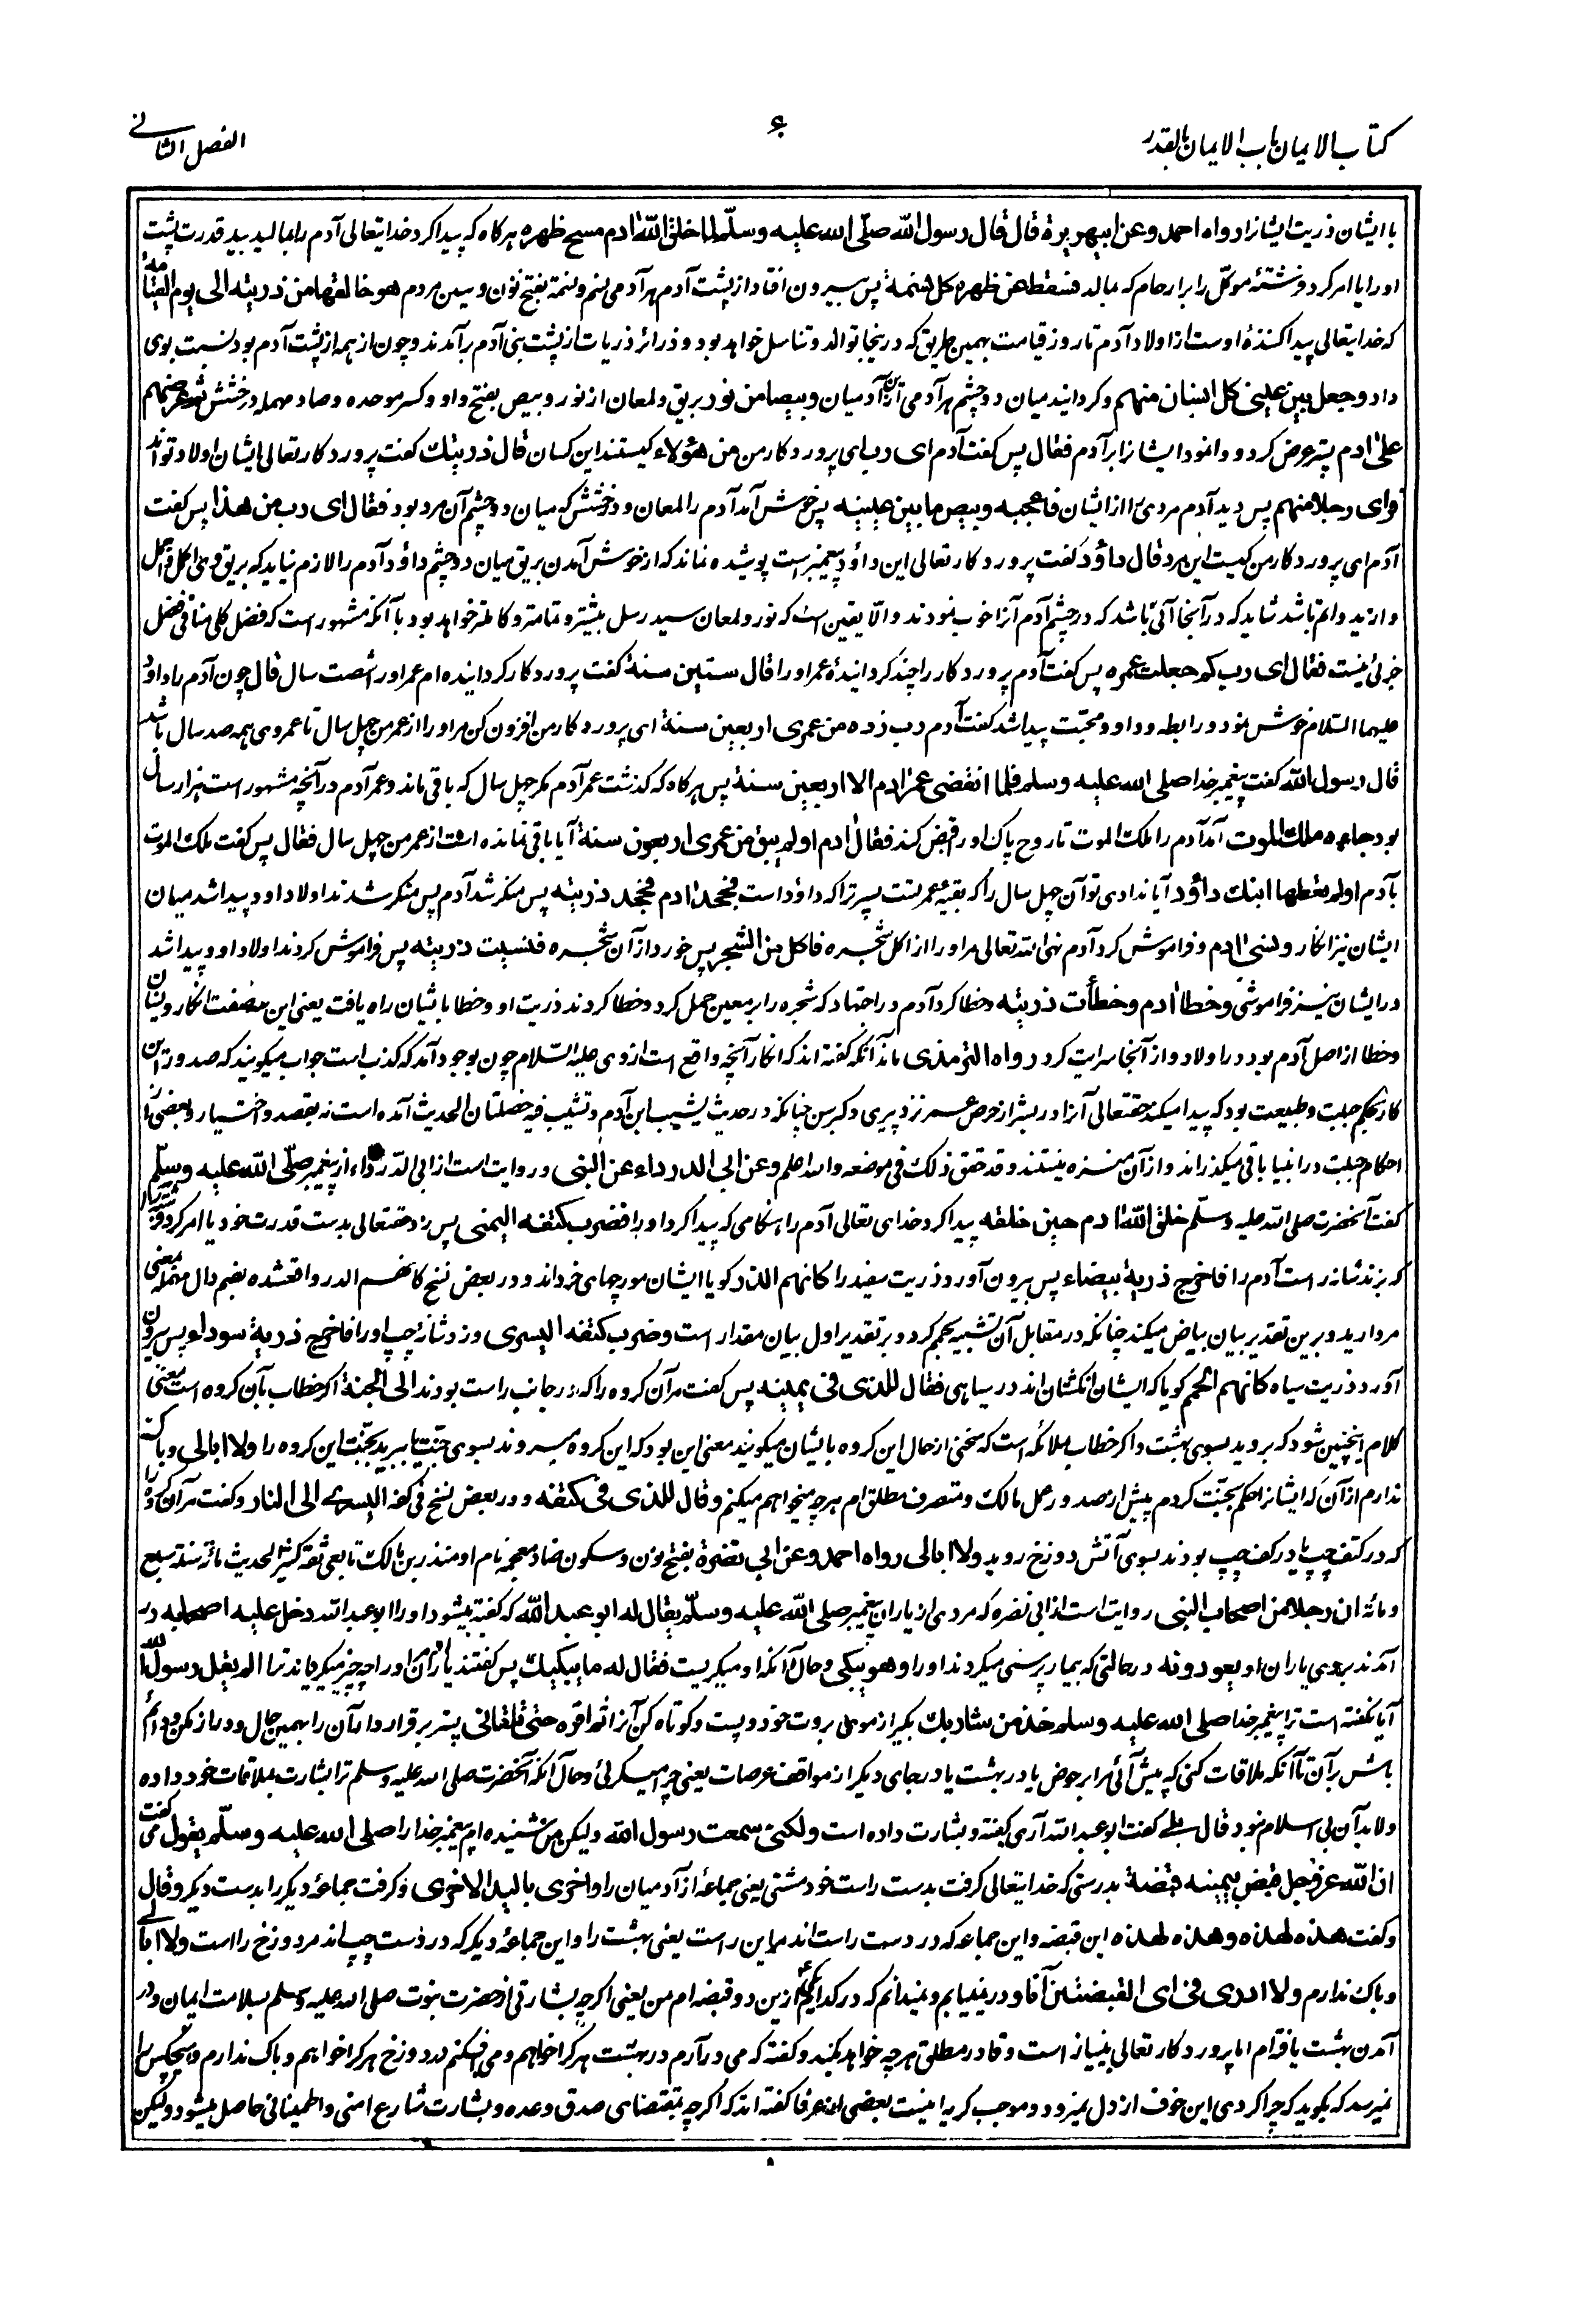 کتاب الایمان باب الایمان بالقدر
۶
الفصل الثانی
با ایشان ذریت ایشانرا رواه احمد وعن ابیهریرة قال قال رسول الله صلی الله علیه وسلم لما خلق الله ادم مسح ظهره هرگاه که پیدا کرد خدایتعالی آدم را بمالید بید قدرت پشت
اورا یا امر کرد فرشتهٔ موکل را بر ارحام که بمالد فسقط عن ظهره کل نسمة پس بیرون افتاد از پشت آدم هر آدمی نسم ونسمة بفتح نون وسین مردم هو خالقها من ذریته الی یوم القیامة
که خدایتعالی پیدا کنندهٔ اوست از اولاد آدم تا روز قیامت بهمین طریق که درینجا بتوالد وتناسل خواهد بود وذرائر ذریات از پشت بنی آدم برآمدند وچون از همه از پشت آدم بود نسبت بوی
داد وجعل بین عینی کل انسان منهم وگردانید میان دو چشم هر آدمی ازین آدمیان وبیصا من نور بریق ولمعان از نور وبیص بفتح واو وکسر موحده وصاد مهمله درخشش ثم عرضهم
علی ادم پستر عرض کرد ووانمود ایشانرا بر آدم فقال پس گفت آدم ای رب ای پروردگار من من هؤلاء کیستند این کسان قال ذریتك گفت پروردگار تعالی ایشان اولاد تو اند
فرای رجلا منهم پس دید آدم مردی را از ایشان فاعجبه وبیص ما بین عینیه پس خوش آمد آدم را لمعان ودرخشش که میان دو چشم آن مرد بود فقال ای رب من هذا پس گفت
آدم ای پروردگار من کیست این مرد قال داؤد گفت پروردگار تعالی این داؤد پیغمبرست پوشیده نماند که از خوش آمدن بریق میان دو چشم داؤد آدم را لازم نیاید که بریق وی اکمل واجمل
وازید واتم باشد شاید که در آنجا آنی باشد که در چشم آدم آنرا خوب نمودند والا یقین است که نور ولمعان سید رسل بیشتر وتمامتر وکاملتر خواهد بود با آنکه مشهور است که فضل کلی منافی فضل
جزئی نیست فقال ای رب کم جعلت عمره پس گفت آدم پروردگار را چند گردانیدهٔ عمر اورا قال ستین سنة گفت پروردگار گردانیده ام عمر اورا شصت سال قال چون آدم را داؤد
علیهما السلام خوش نمود ورابطه وداد ومحبت پیدا شد گفت آدم رب زده من عمری اربعین سنة ای پروردگار من افزون کن مر اورا از عمر من چهل سال تا عمر وی همه صد سال باشد
قال رسول الله گفت پیغمبر خدا صلی الله علیه وسلم فلما انقضی عمر ادم الا اربعین سنة پس هرگاه که گذشت عمر آدم مگر چهل سال که باقی ماند وعمر آدم در آنچه مشهور است هزار سال
بود جاءه ملك الموت آمد آدم را ملک الموت تا روح پاک اورا قبض کند فقال ادم اولم یبق من عمری اربعون سنة آیا باقی نمانده است از عمر من چهل سال فقال پس گفت ملک الموت
بآدم اولم تعطها ابنك داؤد آیا ندادی تو آن چهل سال را که بقیهٔ عمر تست پسر ترا که داؤد است فجحد ادم فجحد ذریته پس منکر شد آدم پس منکر شدند اولاد او وپیدا شد میان
ایشان نیز انکار ونسی ادم وفراموش کرد آدم نهی الله تعالی مر اورا از اکل شجره فاکل من الشجر پس خورد از آن شجره فنسیت ذریته پس فراموش کردند اولاد او وپیدا شد
در ایشان نیز فراموشی وخطا ادم وخطأت ذریته وخطا کرد آدم در اجتهاد که شجره را بر معین حمل کرد وخطا کردند ذریت او وخطا با ایشان راه یافت یعنی این صفت انکار ونسیان
وخطا از اصل آدم بود در اولاد واز آنجا سرایت کرد رواه الترمذی ماند آنکه گفته اند که انکار آنچه واقع است از وی علیه السلام چون بوجود آمد که کذب است جواب میگویند که صدور این
کار بحکم جبلت وطبیعت بود که پیدا میکند حقتعالی آنرا در بشر از حرص عمر نزد پیری وکبر سن چنانکه در حدیث یشیب ابن آدم وتشب فیه خصلتان الحدیث آمده است نه بقصد واختیار وبعضی از
احکام جبلت در انبیا باقی میگذراند واز آن منزه نیستند وقد حقق ذلک فی موضعه والله اعلم وعن ابی الدرداء عن النبی وروایت است از ابی الدرداء از پیغمبر صلی الله علیه وسلم
گفت آنحضرت صلی الله علیه وسلم خلق الله ادم حین خلقه پیدا کرد خدای تعالی آدم را هنگامی که پیدا کرد اورا فضرب کتفه الیمنی پس زد حقتعالی بدست قدرت خود یا امر کرد فرشته را
که بزند شانه راست آدم را فاخرج ذریة بیضاء پس بیرون آورد ذریت سفید را کانهم الذر گویا ایشان مورچهای خرد اند ودر بعض نسخ کانهم الدر واقعشده بضم دال مهمله بمعنی
مروارید وبرین تقدیر بیان بیاض میکند چنانکه در مقابل آن تشبیه بحمم کرد وبر تقدیر اول بیان مقدار است وضرب کتفه الیسری وزد شانهٔ چپ اورا فاخرج ذریة سوداء پس بیرون
آورد ذریت سیاه کانهم الحمم گویا که ایشان انگشتان اند در سیاهی فقال للذی فی یمینه پس گفت مر آن گروه را که در جانب راست بودند الی الجنة اگر خطاب بآن گروه است معنی
کلام اینچنین شود که بروید بسوی بهشت واگر خطاب بملائکه است که سخنی از حال این گروه بایشان میگویند معنی این بود که این گروه میروند بسوی جنت یا ببرید بجنت این گروه را ولا ابالی وباک
ندارم از آن که ایشانرا حکم بجنت کردم پیش از صدور عمل مالک ومتصرف مطلق ام هر چه میخواهم میکنم وقال للذی فی کتفه ودر بعض نسخ فی کفه الیسری الی النار وگفت مر آن گروه را
که در کتف چپ یا در کف چپ بودند بسوی آتش دوزخ روید ولا ابالی رواه احمد وعن ابی نضرة بفتح نون وسکون ضاد معجمه نام او منذر بن مالک تابعی ثقه کثیر الحدیث مات سنة سبع
ومائة ان رجلا من اصحاب النبی روایت است از ابی نضره که مردی از یاران پیغمبر صلی الله علیه وسلم یقال له ابو عبد الله که گفته میشود اورا ابو عبدالله دخل علیه اصحابه در
آمدند بروی یاران او یعودونه در حالتی که بیمار پرسی میکردند اورا وهو یبکی وحال آنکه او میگریست فقال له ما یبکیك پس گفتند یاران اورا چه چیز میگریاند ترا الم یقل رسول الله
آیا نگفته است ترا پیغمبر خدا صلی الله علیه وسلم خذ من شاربك بگیر از موی بروت خود وپست وکوتاه کن آنرا ثم اقره حتی تلقانی پستر برقرار دار آن را بهمین حال ودراز مکن ودائم
باش بر آن تا آنکه ملاقات کنی که پیش آئی مرا بر حوض یا در بهشت یا در جای دیگر از مواقف عرصات یعنی چرا میگرئی وحال آنکه آنحضرت صلی الله علیه وسلم ترا بشارت بملاقات خود داده
ولابد آن بی اسلام نبود قال بلی گفت ابو عبدالله آری گفته وبشارت داده است ولکن سمعت رسول الله ولیکن من شنیده ام پیغمبر خدا را صلی الله علیه وسلم یقول می گفت
ان الله عز وجل قبض بیمینه قبضة بدرستی که خدایتعالی گرفت بدست راست خود مشتی یعنی جماعهٔ از آدمیان را واخری بالید الاخری وگرفت جماعهٔ دیگر را بدست دیگر وقال
وگفت هذه لهذه وهذه لهذه این قبضه واین جماعه که در دست راست اند مر این راست یعنی بهشت را واین جماعهٔ دیگر که در دست چپ اند مر دوزخ را است ولا ابالی
وباک ندارم ولا ادری فی ای القبضتین آنا ودر نمییابم ونمیدانم که در کدام ازین دو قبضه ام من یعنی اگرچه بشارتی از حضرت نبوت صلی الله علیه وسلم بسلامت ایمان ودر
آمدن بهشت یافته ام اما پروردگار تعالی بینیاز است وقادر مطلق هر چه خواهد بکند وگفته که می درآرم در بهشت هر کرا خواهم ومی افگنم در دوزخ هر کرا خواهم وباک ندارم وهیچکس را
نمیرسد که بگوید که چرا کردی این خوف از دل نمیرود وموجب گریه اینست بعضی از عرفا گفته اند که اگرچه بمقتضای صدق وعده وبشارت شارع امنی واطمینانی حاصل میشود ولیکن